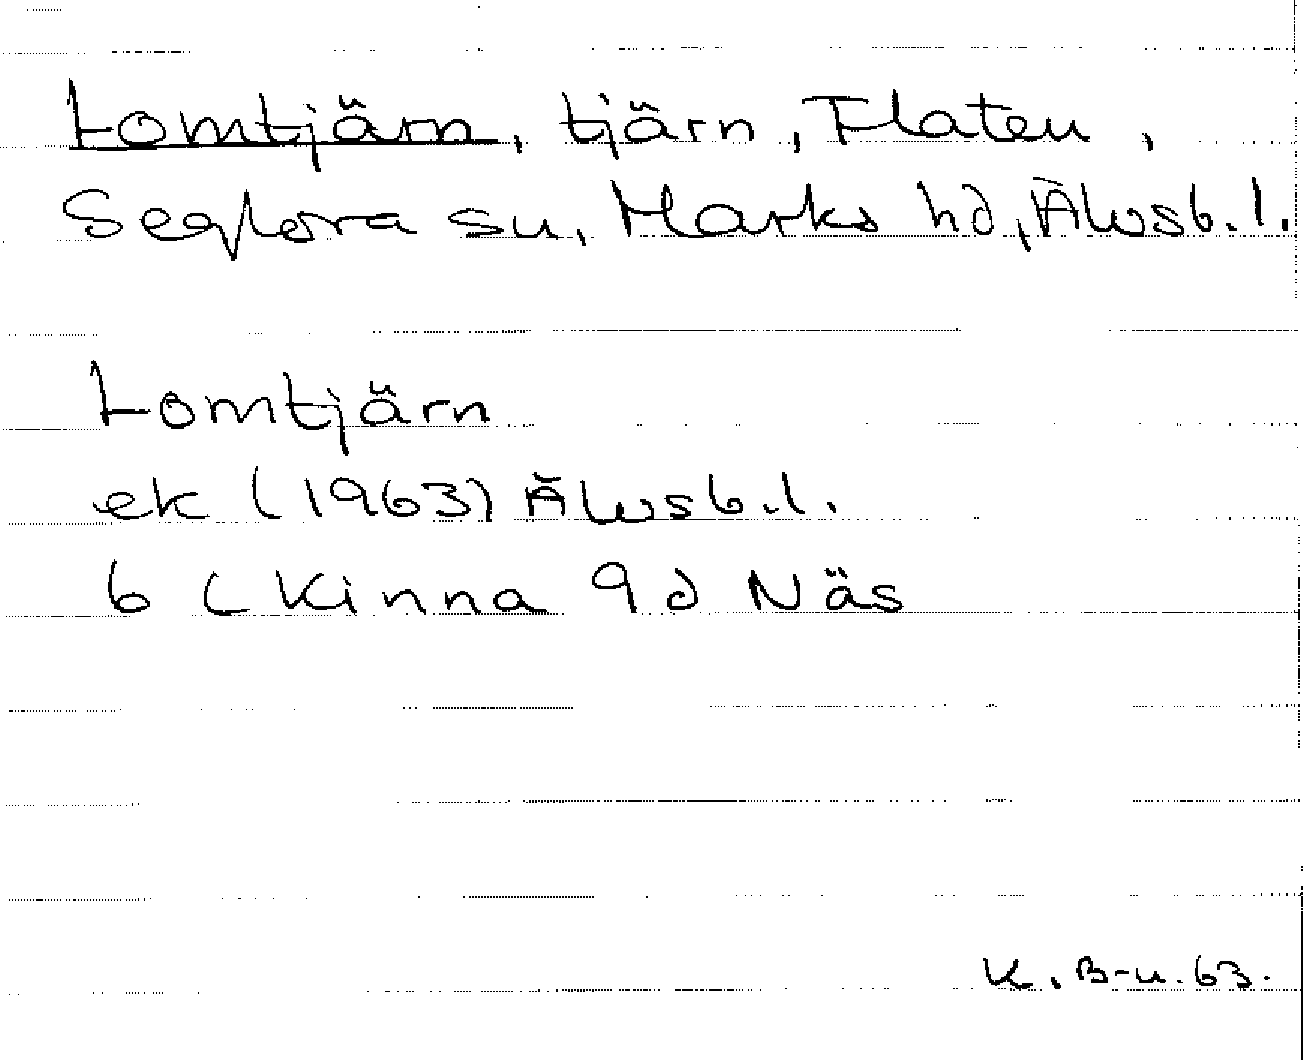 Lomtjärn, tjärn, Flaten,
Seglora sn, Marks hd, Älvsb. l.
Lomtjärn
ek (1963) Älvsb. l.
6 C Kinna 9 d Näs
K. B-n. 63.